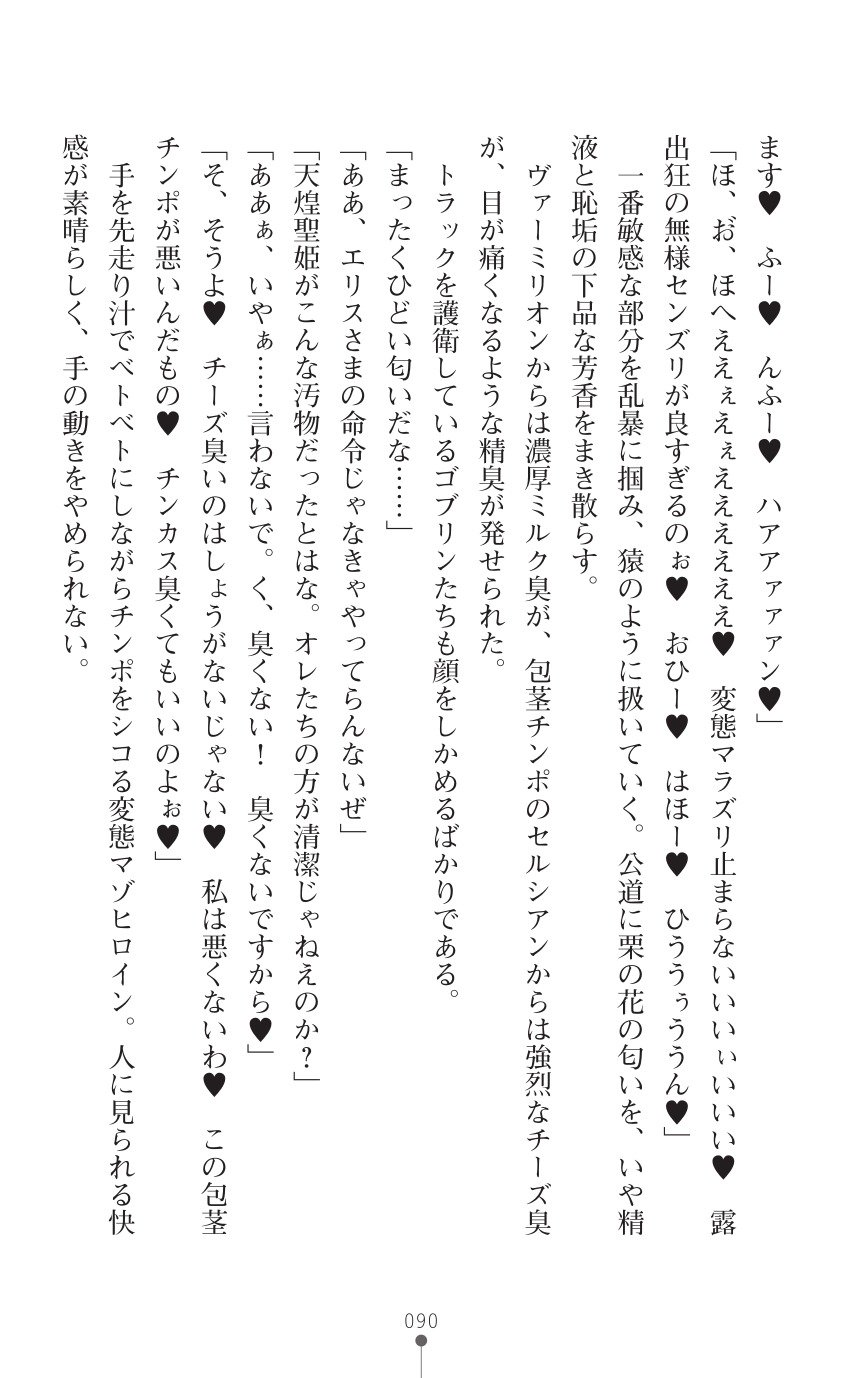 ます♥　ふー♥　んふー♥　ハアアァァン♥」
「ほ、お゙、ほへええぇえぇええええええ♥　変態マラズリ止まらないいいぃいいい♥　露
出狂の無様センズリが良すぎるのぉ♥　おひー♥　はほー♥　ひううぅううん♥」
　一番敏感な部分を乱暴に掴み、猿のように扱いていく。公道に栗の花の匂いを、いや精
液と恥垢の下品な芳香をまき散らす。
　ヴァーミリオンからは濃厚ミルク臭が、包茎チンポのセルシアンからは強烈なチーズ臭
が、目が痛くなるような精臭が発せられた。
　トラックを護衛しているゴブリンたちも顔をしかめるばかりである。
「まったくひどい匂いだな……」
「ああ、エリスさまの命令じゃなきゃやってらんないぜ」
「天煌聖姫がこんな汚物だったとはな。オレたちの方が清潔じゃねえのか？」
「ああぁ、いやぁ……言わないで。く、臭くない！　臭くないですから♥」
「そ、そうよ♥　チーズ臭いのはしょうがないじゃない♥　私は悪くないわ♥　この包茎
チンポが悪いんだもの♥　チンカス臭くてもいいのよぉ♥」
　手を先走り汁でベトベトにしながらチンポをシコる変態マゾヒロイン。人に見られる快
感が素晴らしく、手の動きをやめられない。
090